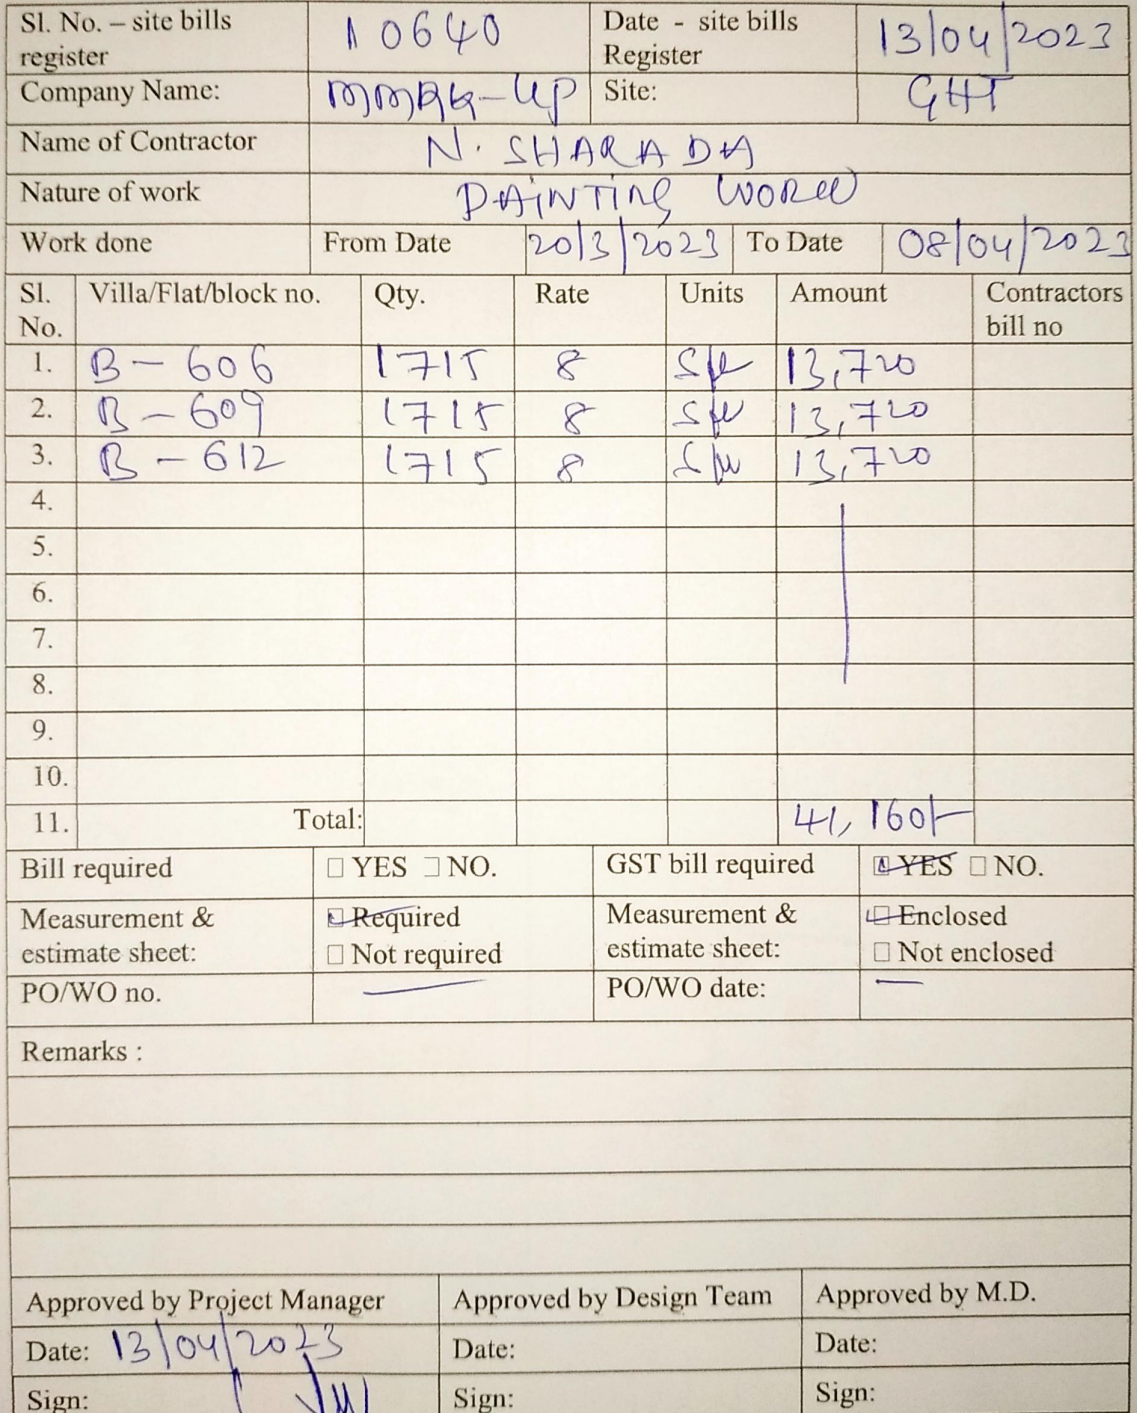 Sl. No. – site bills register 10640 Date - site bills Register 13/04/2023
Company Name: Site: GHT
Name of Contractor N. SHARADA
Nature of work PAINTING WORK
Work done From Date 20/3/2023 To Date 08/04/2023
Sl. No. Villa/Flat/block no. Qty. Rate Units Amount Contractors bill no
1. B - 606 1715 8 13,720
2. B - 609 1715 8 13,720
3. B - 612 1715 8 13,720
4.
5.
6.
7.
8.
9.
10.
11. Total: 41,160/-
Bill required ☐ YES ☐ NO. GST bill required ☐ YES ☐ NO.
Measurement & estimate sheet: ☐ Required Measurement & estimate sheet: ☐ Enclosed
☐ Not required ☐ Not enclosed
PO/WO no. — PO/WO date: —
Remarks :
Approved by Project Manager Approved by Design Team Approved by M.D.
Date: 13/04/2023 Date: Date:
Sign: Sign: Sign: